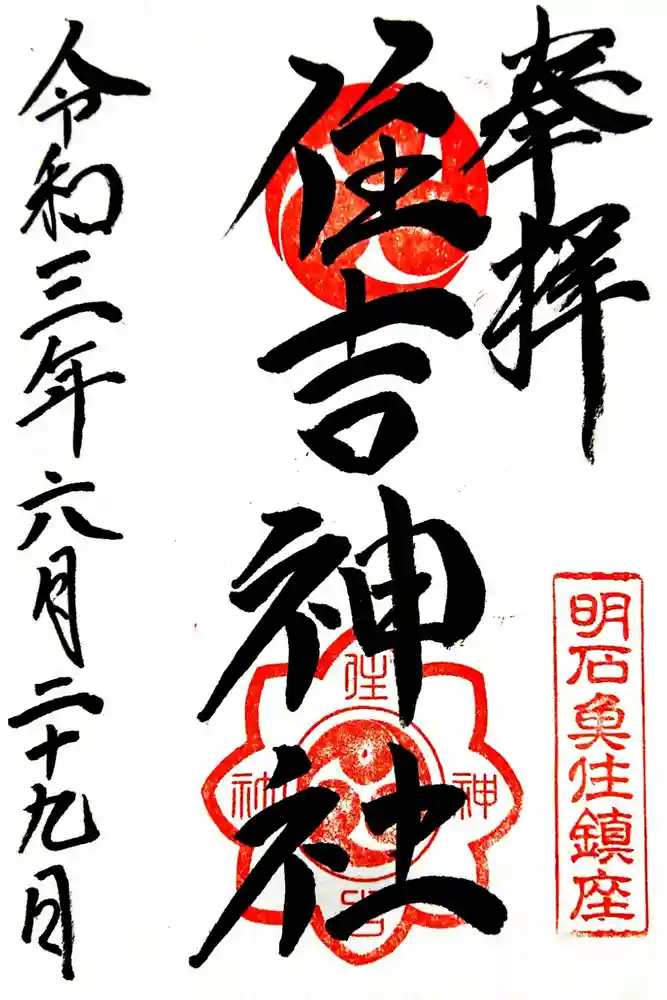 奉拝
明石魚住鎮座
住吉神社
住
神
吉
社
令和三年六月二十九日